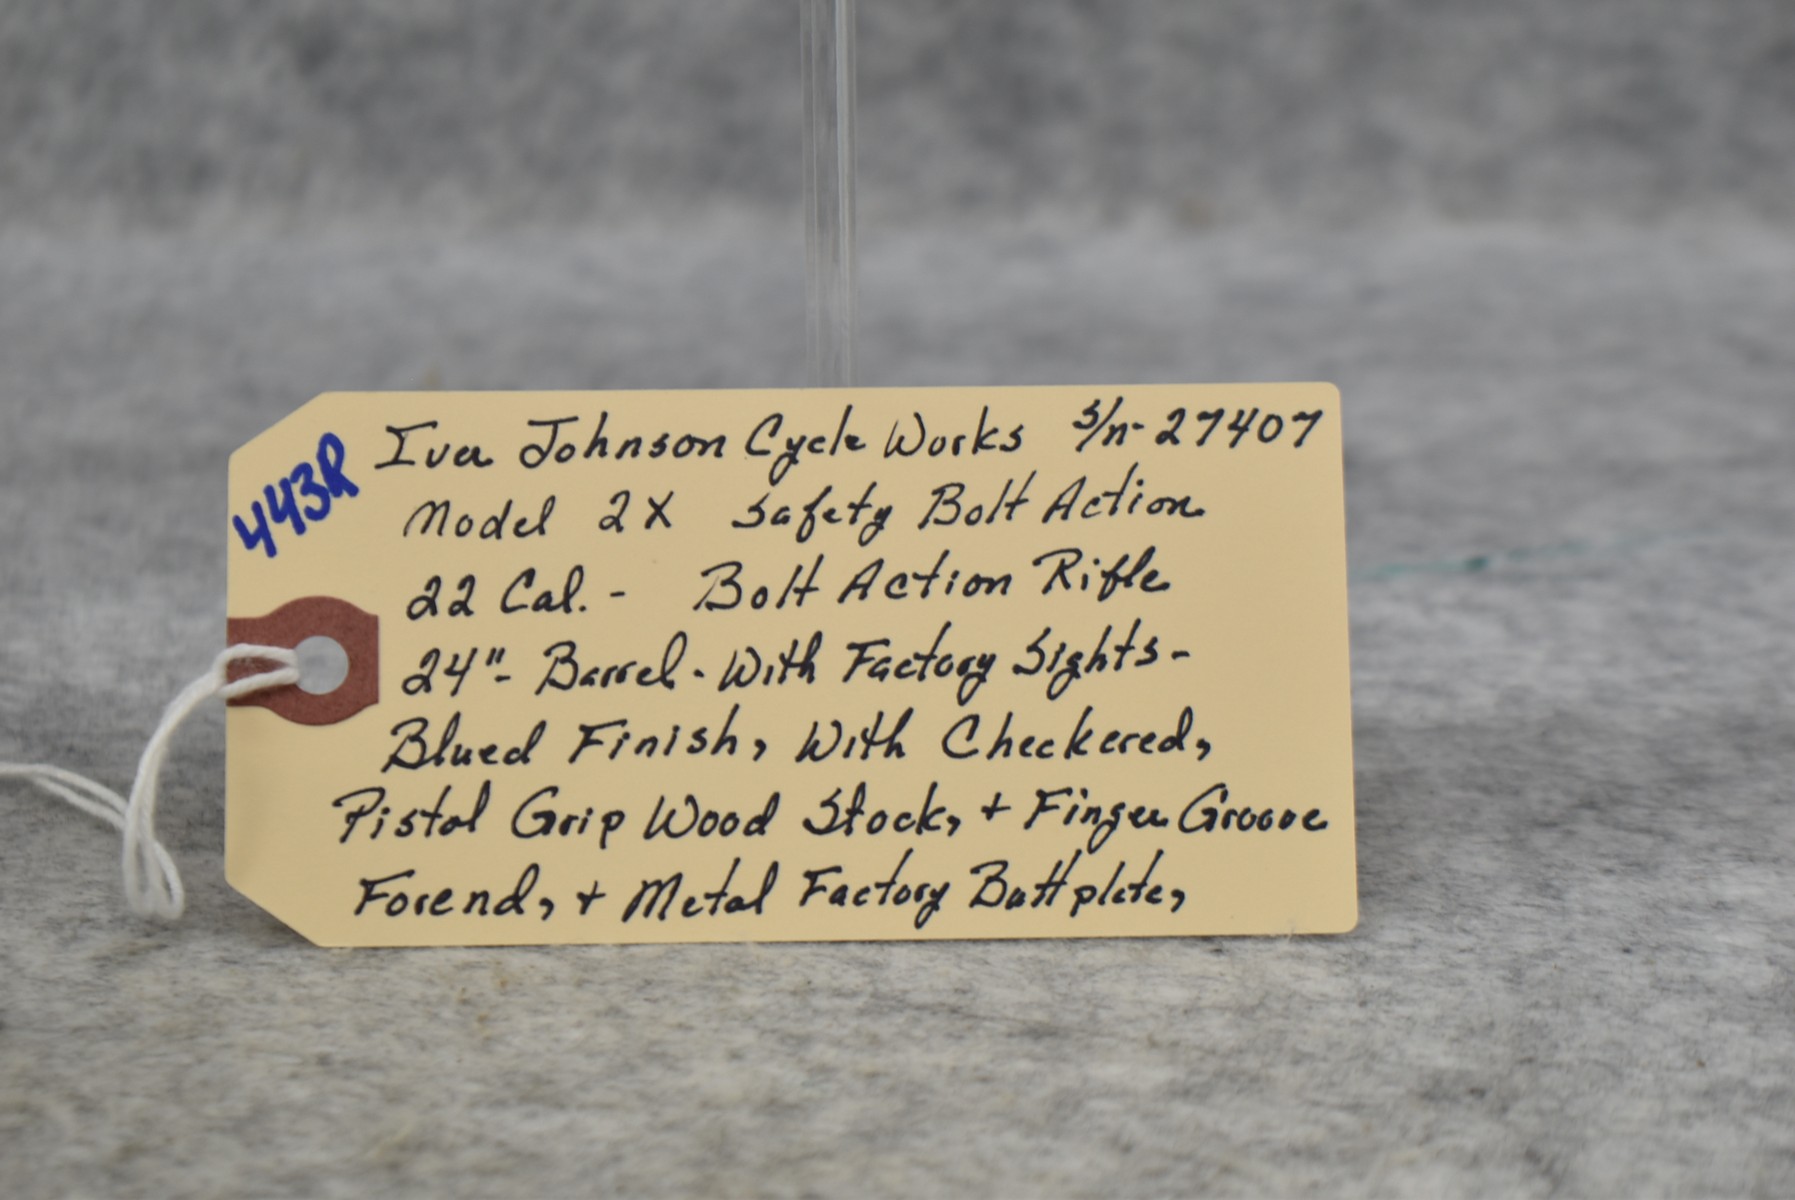 443R
Iver Johnson Cycle Works S/n-27407
Model 2X Safety Bolt Action
22 Cal. - Bolt Action Rifle
24"- Barrel - With Factory Sights-
Blued Finish, With Checkered,
Pistol Grip Wood Stock, + Finger Groove
Forend, + Metal Factory Buttplate,